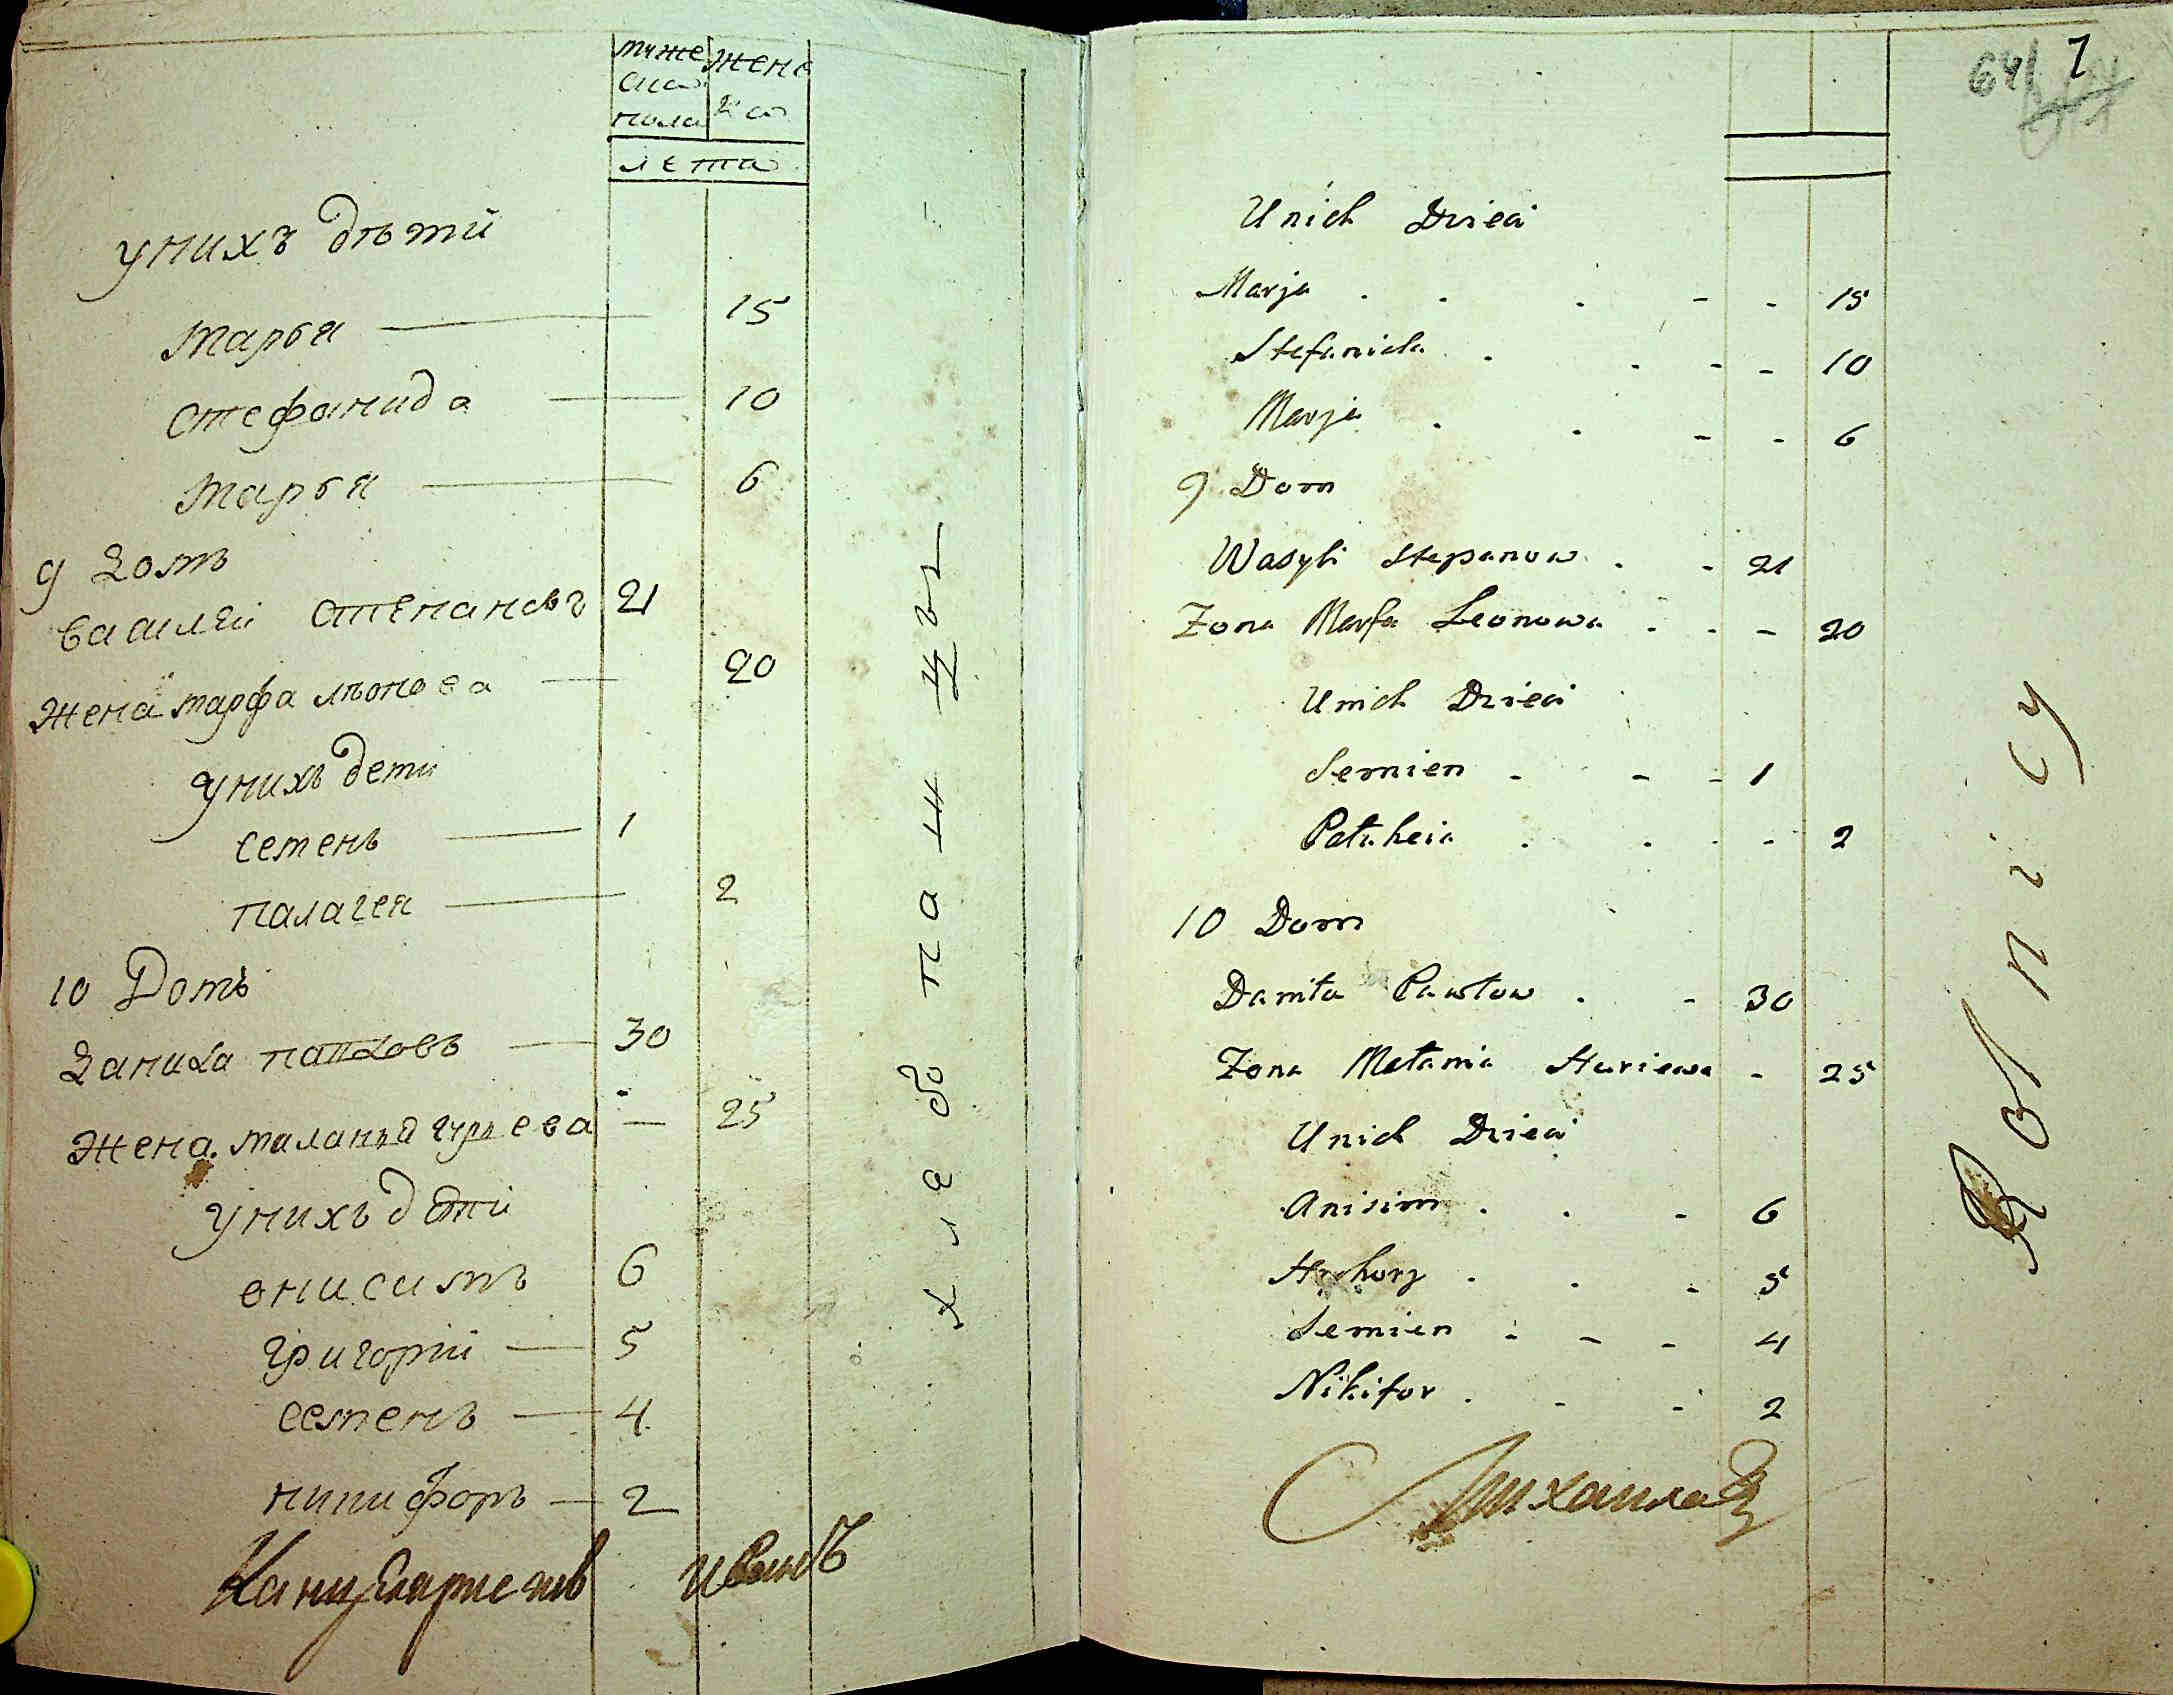 муже жене
ска ка
пола
лета
унихъ дѣти
марья 15
стефанида 10
марья 6
9 Домъ
василей степановъ 21
жена марфа лѣонова 20
унихъ дети
семенъ 1
палагея 2
10 Домъ
Данила павловъ 30
жена маланья гурьева 25
унихъ дети
онисимъ 6
григорий 5
семенъ 4
никифоръ 2
хлебопашцы
7
64
Unich Dzieci
Marja 15
Stefanida 10
Marja 6
9 Dom
Wasyli Stepanow 21
Zona Marfa Leonowa 20
Unich Dzieci
Semien 1
Pałaheia 2
10 Dom
Daniła Pawłow 30
Zona Mełania Huriewa 25
Unich Dzieci
Anisim 6
Hrehory 5
Semien 4
Nikifor 2
Rolnicy